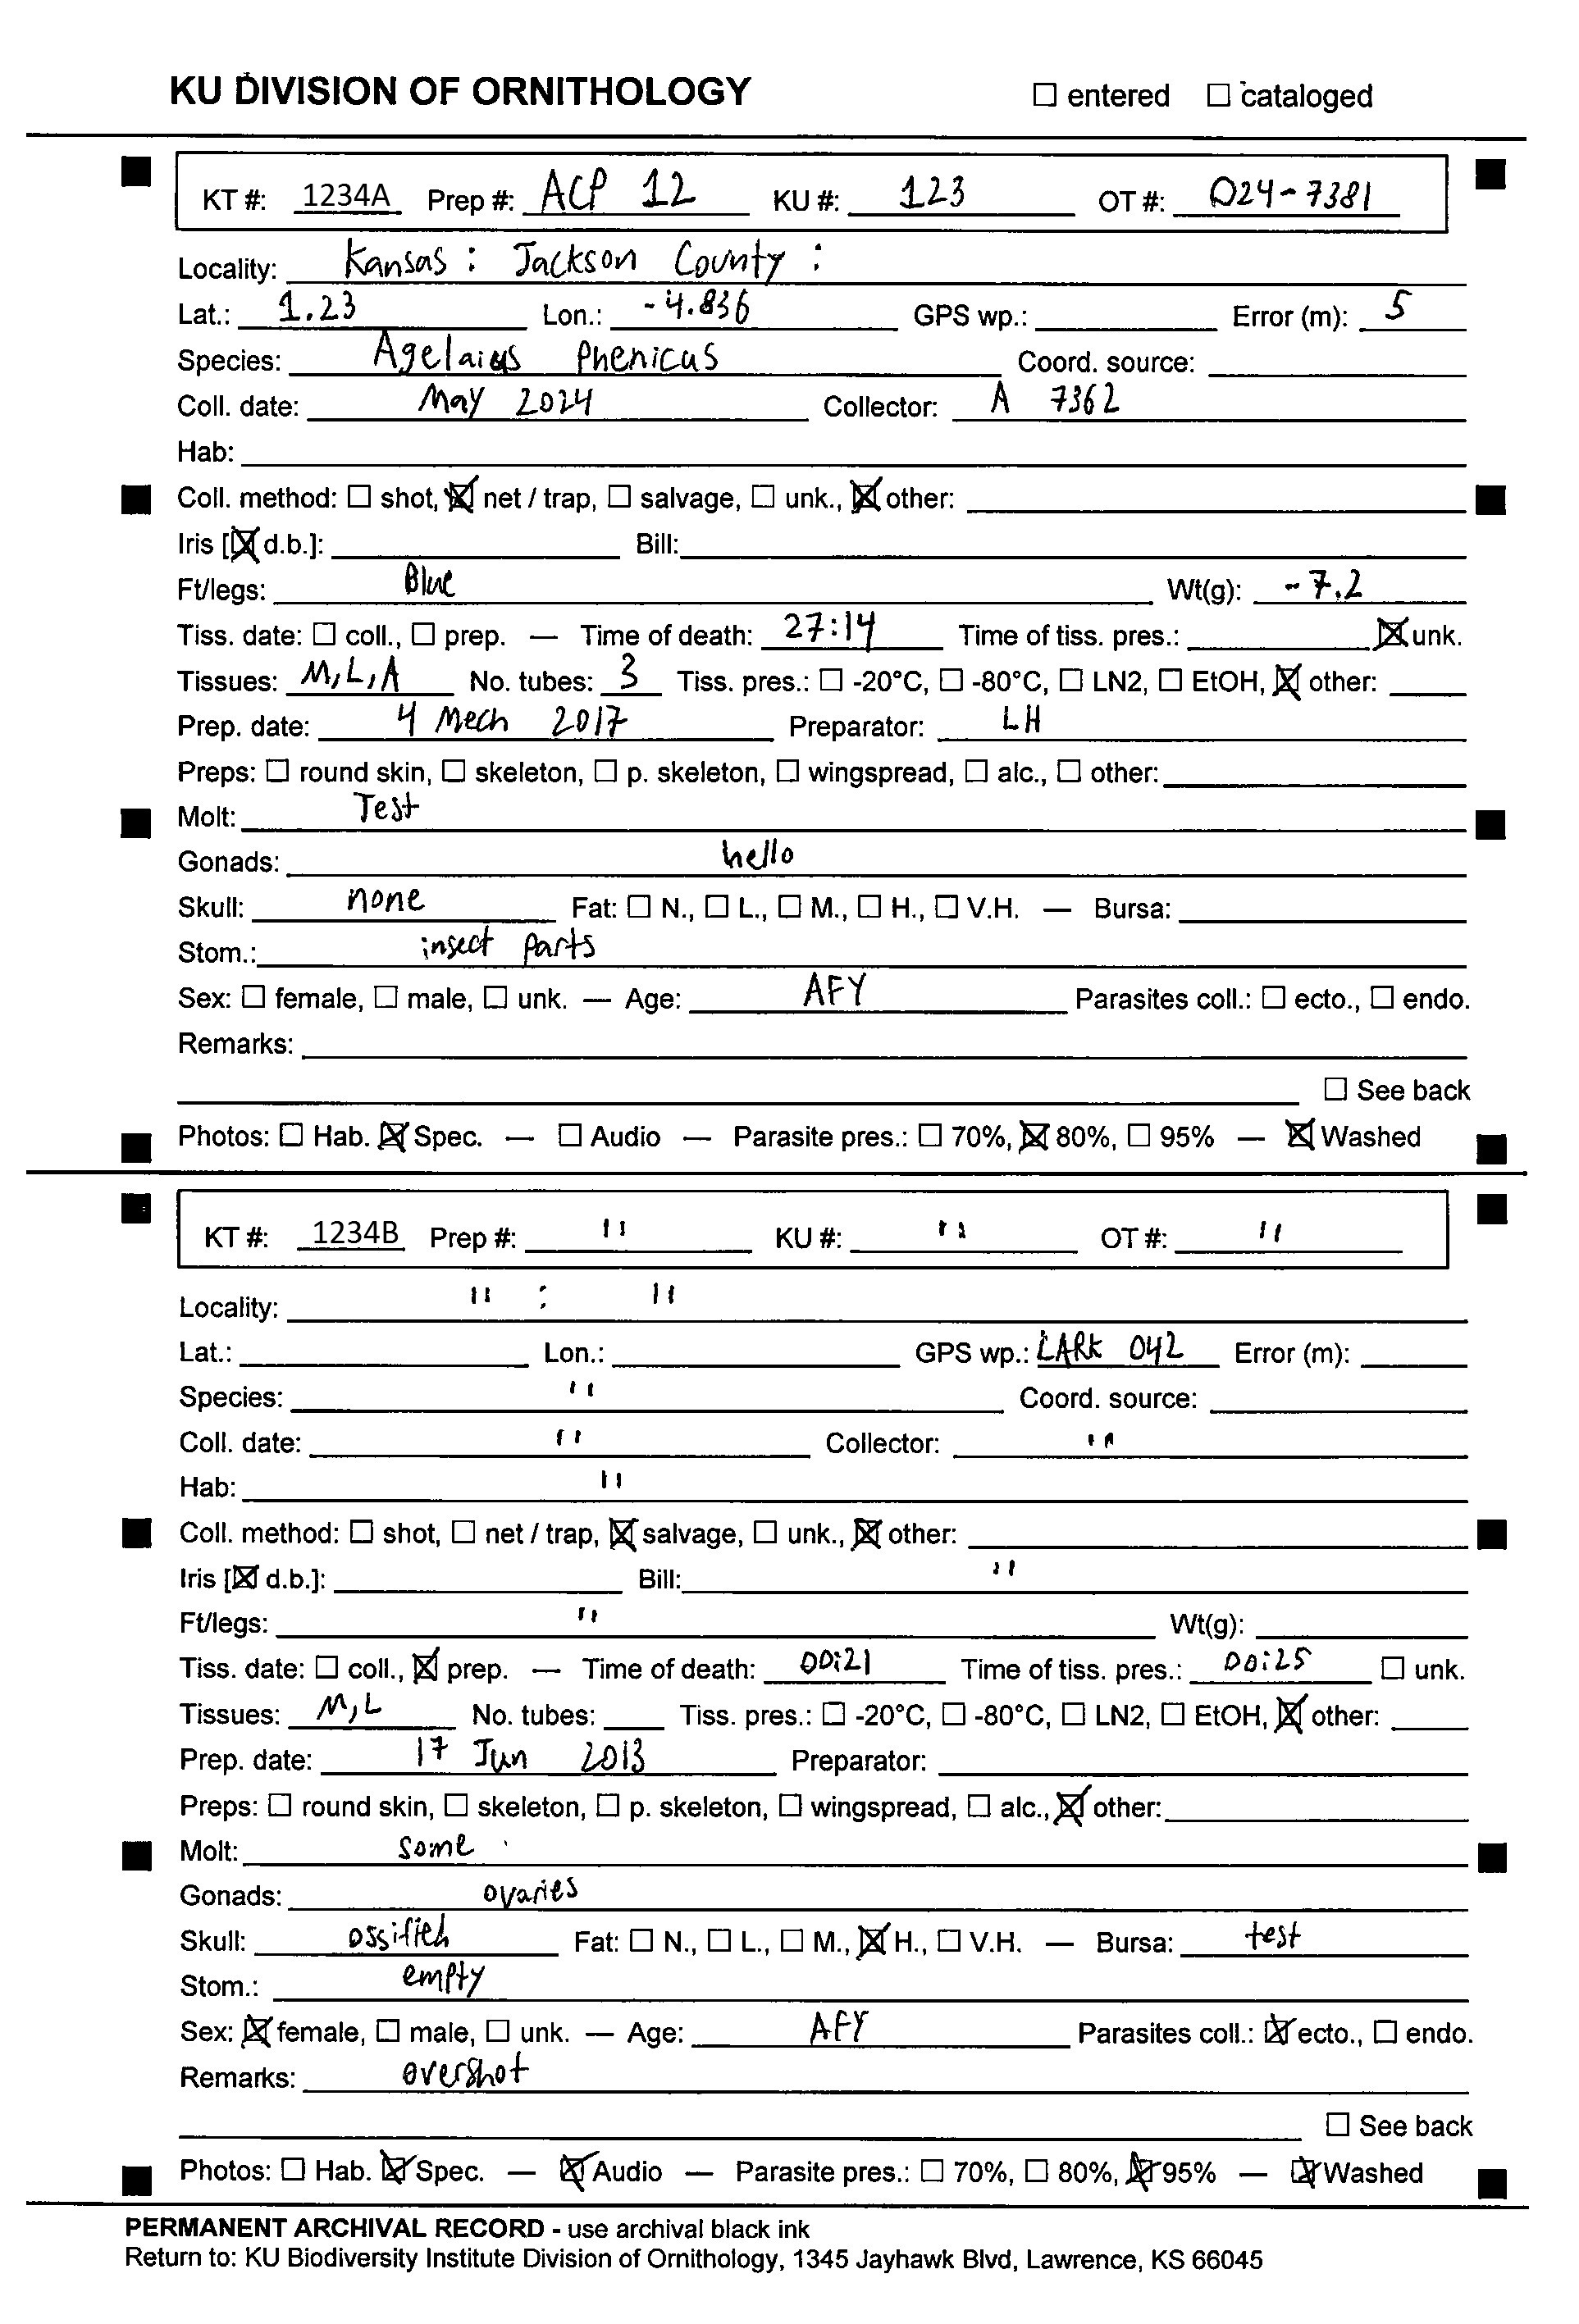 KU DIVISION OF ORNITHOLOGY ☐ entered ☐ cataloged
KT #: 1234A Prep #: ACP 12 KU #: 123 OT #: 024-7381
Locality: Kansas : Jackson County :
Lat.: 1.23 Lon.: -4.836 GPS wp.: Error (m): 5
Species: Agelaius Phenicus Coord. source:
Coll. date: May 2024 Collector: A 7362
Hab:
Coll. method: ☐ shot, ☒ net / trap, ☐ salvage, ☐ unk., ☒ other:
Iris [☒ d.b.]: Bill:
Ft/legs: Blue Wt(g): -7.2
Tiss. date: ☐ coll., ☐ prep. — Time of death: 27:14 Time of tiss. pres.: ☒ unk.
Tissues: M,L,A No. tubes: 3 Tiss. pres.: ☐ -20°C, ☐ -80°C, ☐ LN2, ☐ EtOH, ☒ other:
Prep. date: 4 Mech 2017 Preparator: LH
Preps: ☐ round skin, ☐ skeleton, ☐ p. skeleton, ☐ wingspread, ☐ alc., ☐ other:
Molt: Test
Gonads: hello
Skull: none Fat: ☐ N., ☐ L., ☐ M., ☐ H., ☐ V.H. — Bursa:
Stom.: insect parts
Sex: ☐ female, ☐ male, ☐ unk. — Age: AFY Parasites coll.: ☐ ecto., ☐ endo.
Remarks:
☐ See back
Photos: ☐ Hab. ☒ Spec. — ☐ Audio — Parasite pres.: ☐ 70%, ☒ 80%, ☐ 95% — ☒ Washed
KT #: 1234B Prep #: " KU #: " OT #: "
Locality: " : "
Lat.: Lon.: GPS wp.: LARK 042 Error (m):
Species: " Coord. source:
Coll. date: " Collector: "
Hab: "
Coll. method: ☐ shot, ☐ net / trap, ☒ salvage, ☐ unk., ☒ other:
Iris [☒ d.b.]: Bill: "
Ft/legs: " Wt(g):
Tiss. date: ☐ coll., ☒ prep. — Time of death: 00:21 Time of tiss. pres.: 00:25 ☐ unk.
Tissues: M,L No. tubes: Tiss. pres.: ☐ -20°C, ☐ -80°C, ☐ LN2, ☐ EtOH, ☒ other:
Prep. date: 17 Jun 2013 Preparator:
Preps: ☐ round skin, ☐ skeleton, ☐ p. skeleton, ☐ wingspread, ☐ alc., ☒ other:
Molt: some
Gonads: ovaries
Skull: ossified Fat: ☐ N., ☐ L., ☐ M., ☒ H., ☐ V.H. — Bursa: test
Stom.: empty
Sex: ☒ female, ☐ male, ☐ unk. — Age: AFY Parasites coll.: ☒ ecto., ☐ endo.
Remarks: overshot
☐ See back
Photos: ☐ Hab. ☒ Spec. — ☒ Audio — Parasite pres.: ☐ 70%, ☐ 80%, ☒ 95% — ☒ Washed
PERMANENT ARCHIVAL RECORD - use archival black ink
Return to: KU Biodiversity Institute Division of Ornithology, 1345 Jayhawk Blvd, Lawrence, KS 66045